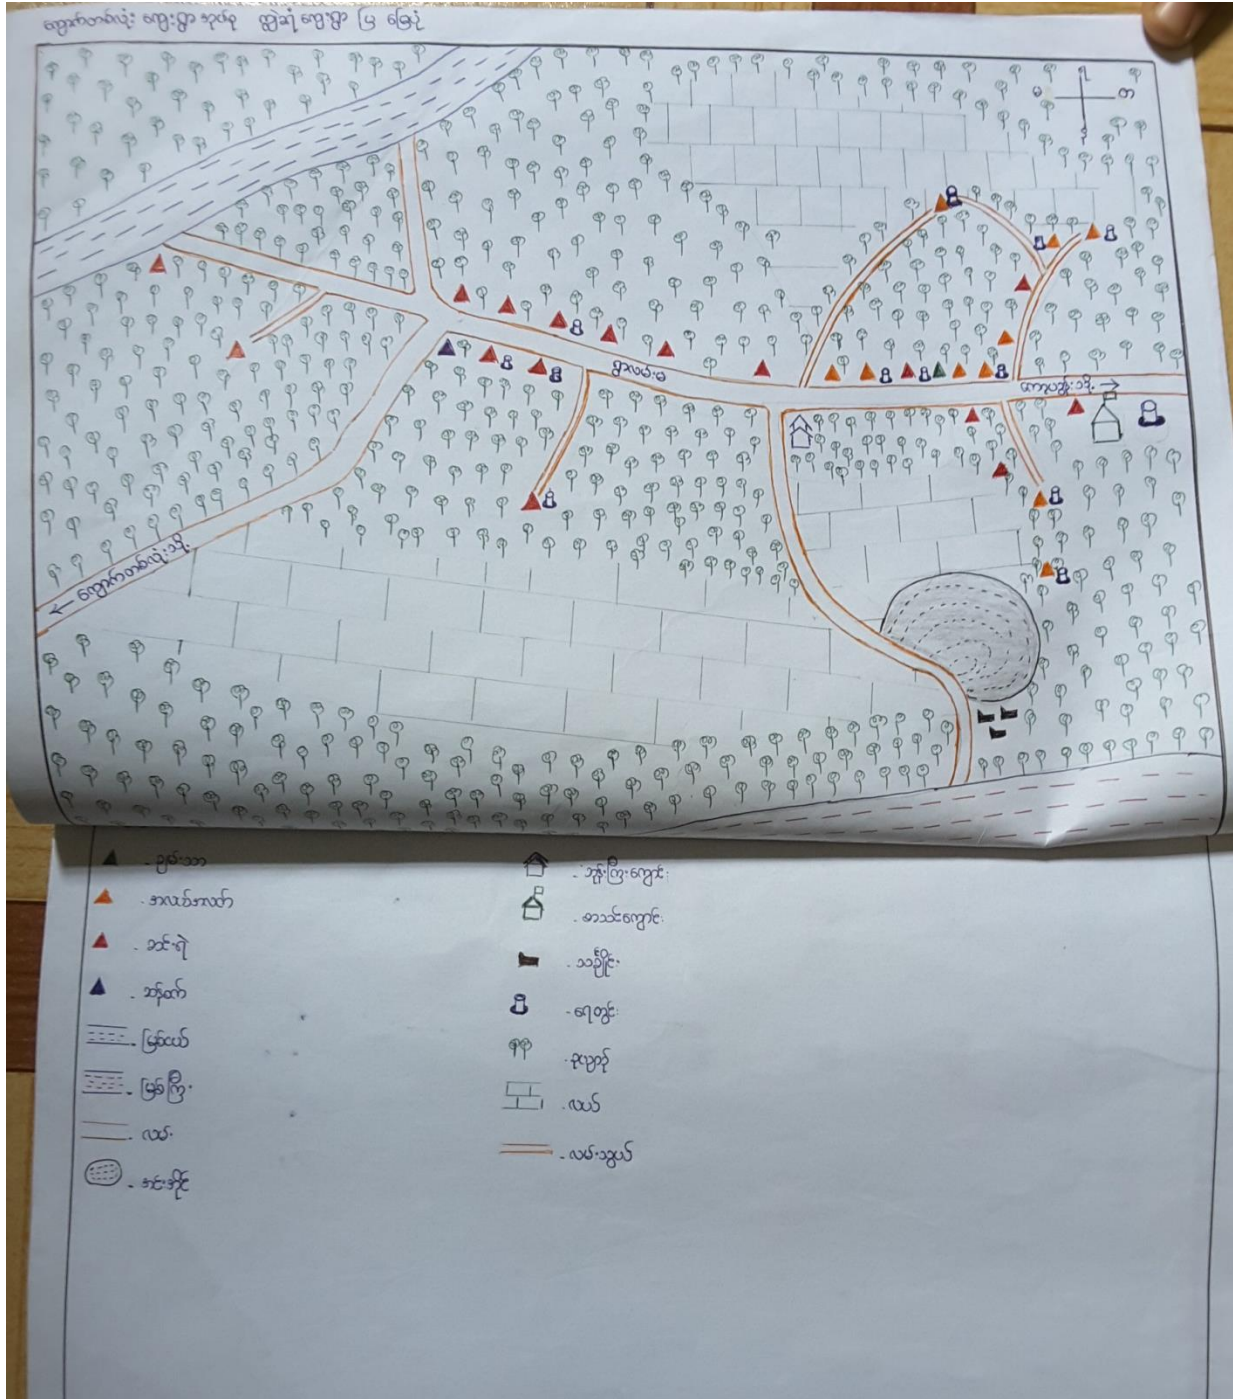 ကျောက်တစ်လုံး ကျေးရွာ အုပ်စု ကွဲဆုံ ကျေးရွာ ပြ မြေပုံ
မ တ
ရွာလမ်းမ
ကောပဏ္ဍိုးသို့ →
← ကျောက်တစ်လုံးသို့
- ချမ်းသာ
- အလယ်အလတ်
- ဆင်းရဲ
- ဘန်ထက်
- မြစ်ငယ်
- မြစ်ကြီး
- လမ်း
- အင်းအိုင်
- ဘုန်းကြီးကျောင်း
- စာသင်ကျောင်း
- သင်္ချိုင်း
- ရေတွင်း
- ဥယျာဉ်
- လယ်
- လမ်းသွယ်